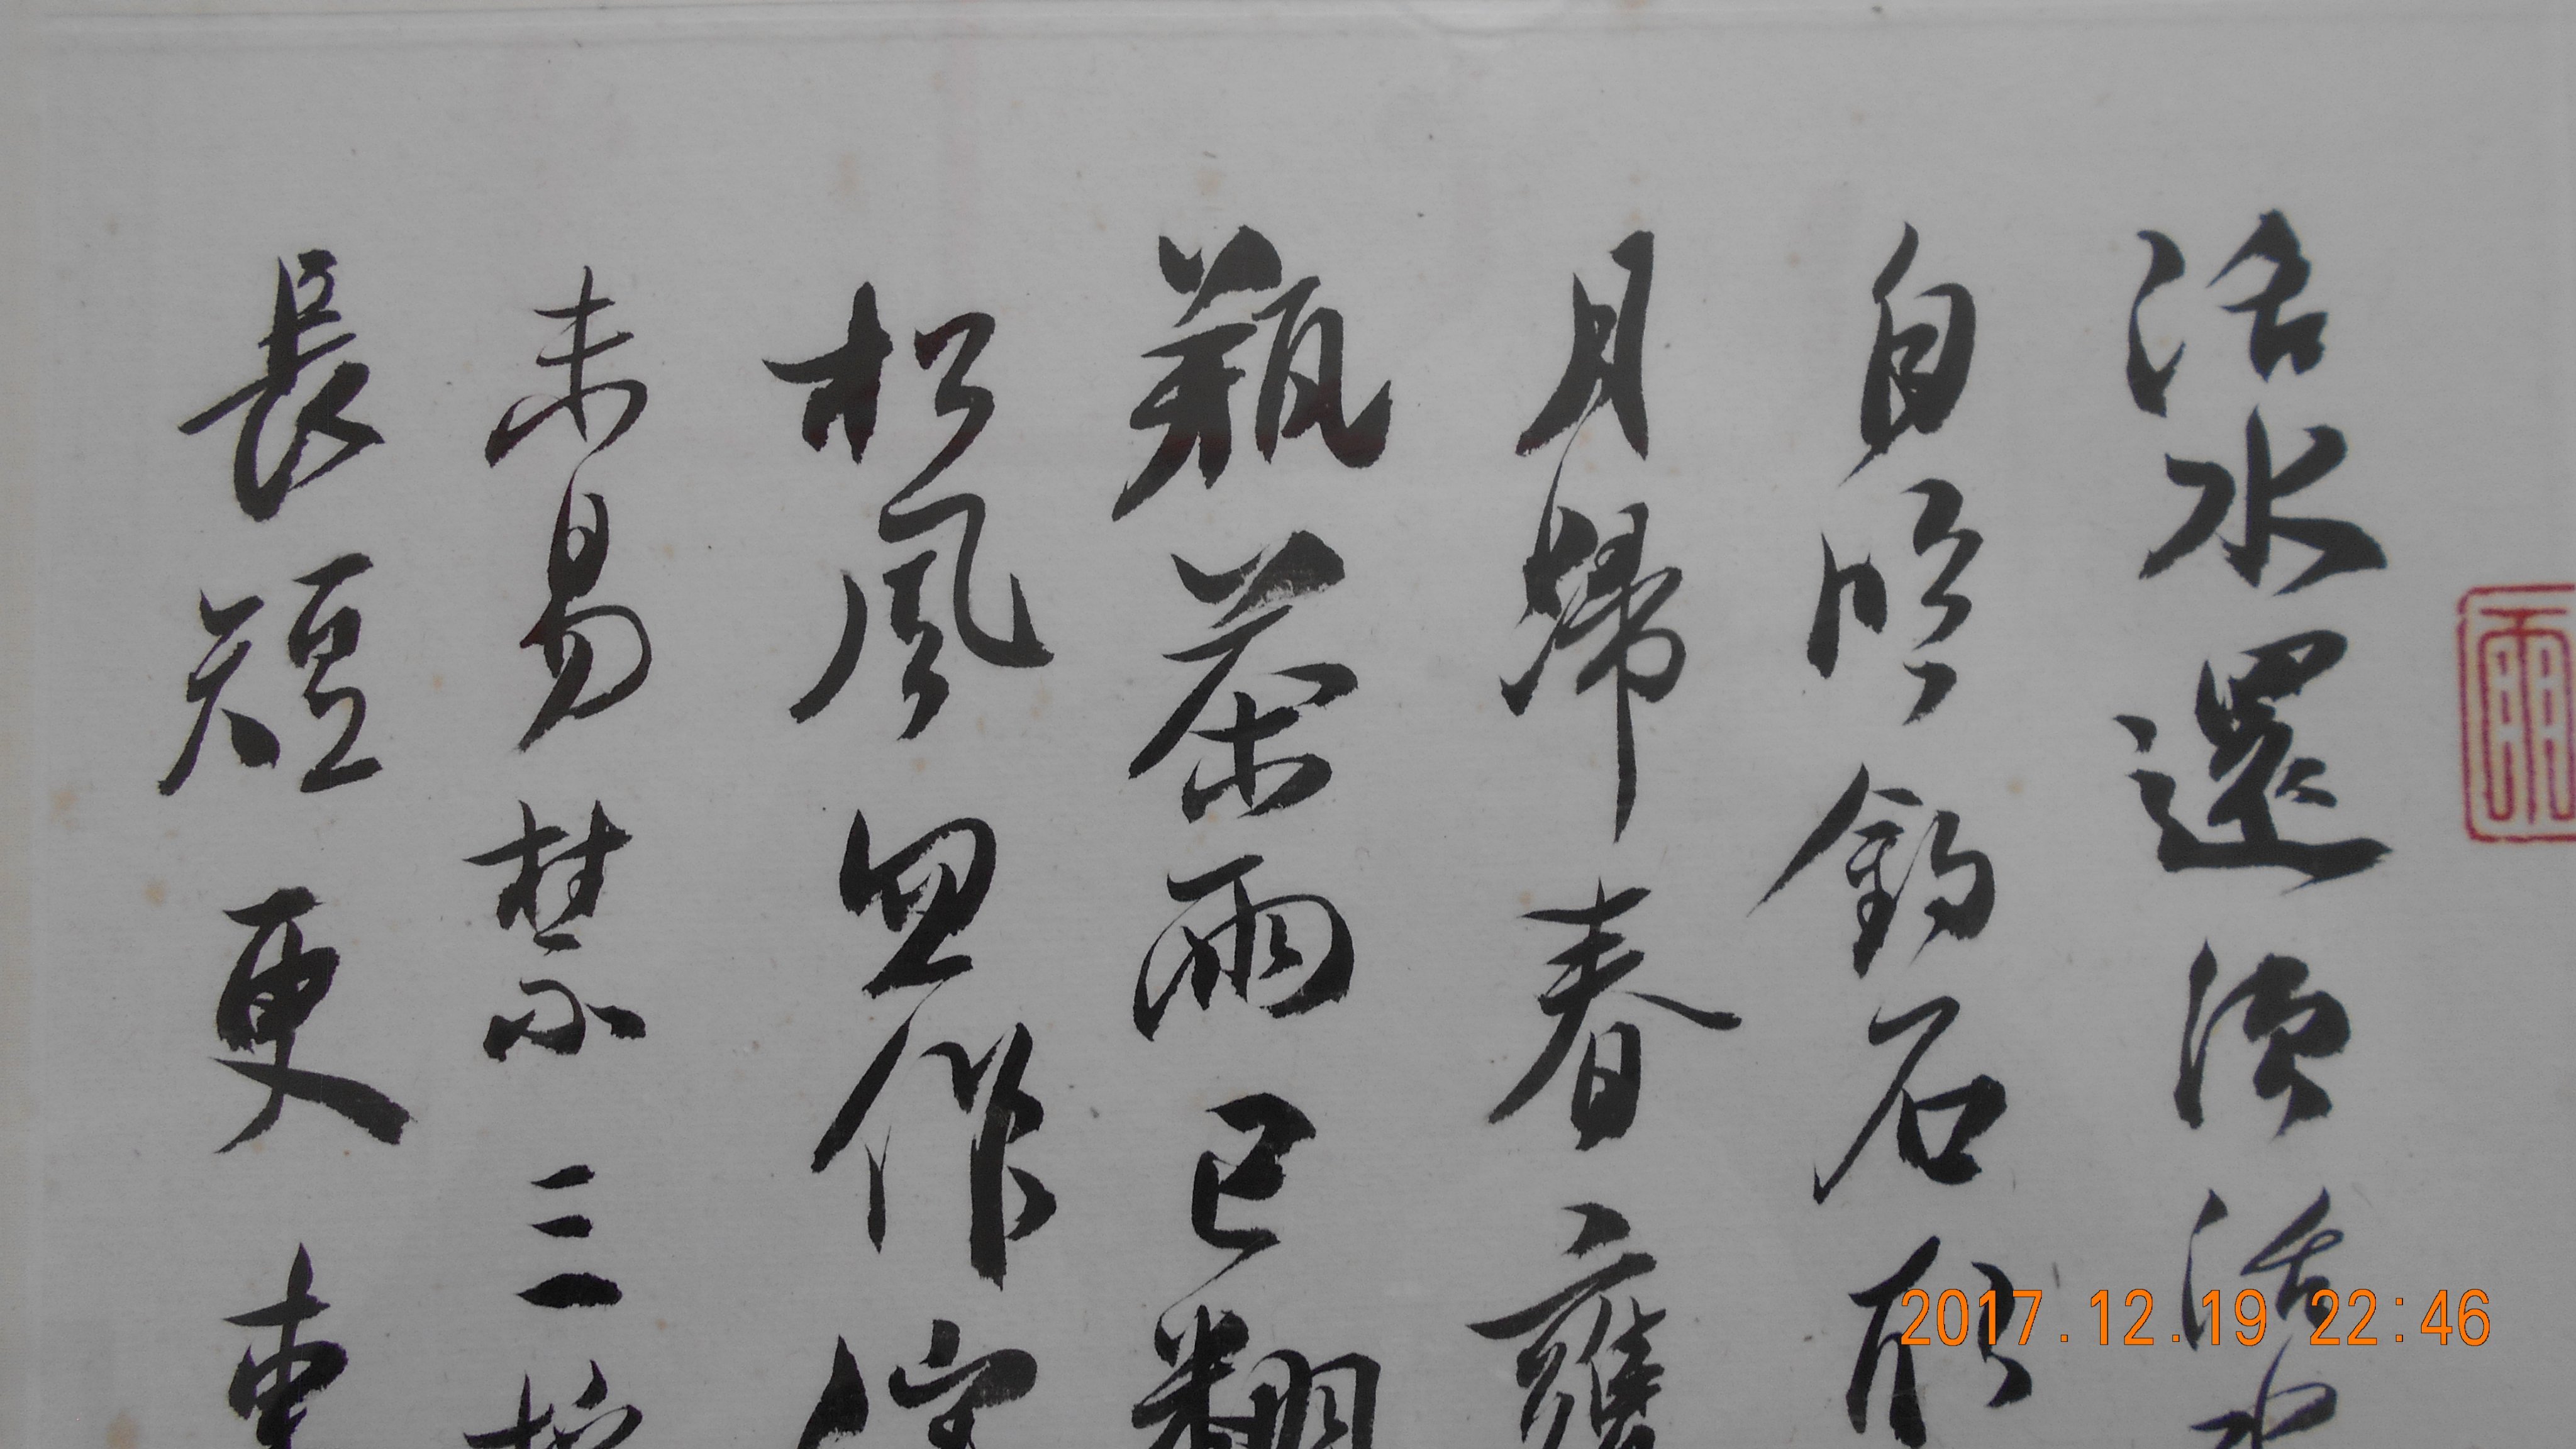 活水還須活
自臨釣石取
月歸春甕
瓶茶雨已翻
松風忽作瀉
未易禁三椀
長短更東
2017.12.19 22:46